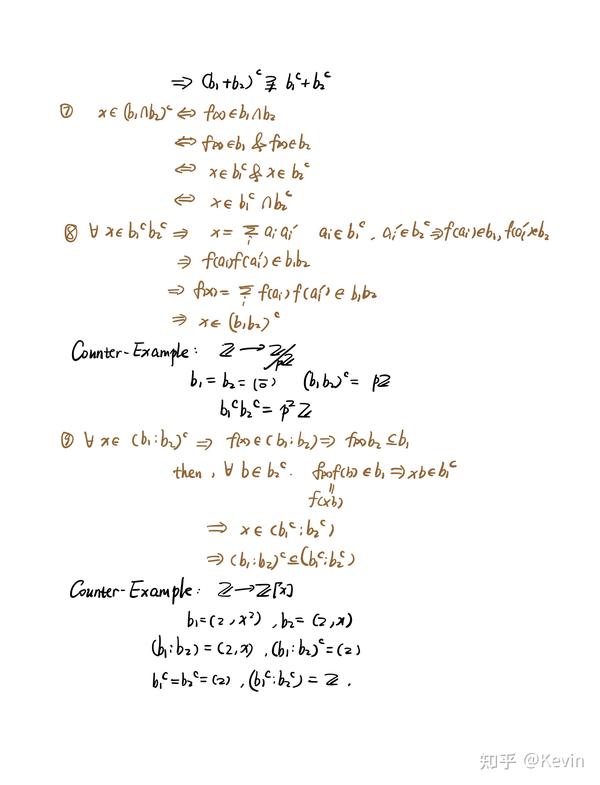 ⇒ (b₁+b₂)ᶜ ⊋ b₁ᶜ+b₂ᶜ
⑦ x∈(b₁∩b₂)ᶜ ⇔ f(x)∈b₁∩b₂
⇔ f(x)∈b₁ & f(x)∈b₂
⇔ x∈b₁ᶜ & x∈b₂ᶜ
⇔ x∈b₁ᶜ∩b₂ᶜ
⑧ ∀ x∈b₁ᶜb₂ᶜ ⇒ x = Σᵢ aᵢaᵢ′ aᵢ∈b₁ᶜ, aᵢ′∈b₂ᶜ ⇒ f(aᵢ)∈b₁, f(aᵢ′)∈b₂
⇒ f(aᵢ)f(aᵢ′)∈b₁b₂
⇒ f(x) = Σᵢ f(aᵢ)f(aᵢ′)∈b₁b₂
⇒ x∈(b₁b₂)ᶜ
Counter-Example: ℤ→ℤ/pℤ
b₁=b₂=(0̄) (b₁b₂)ᶜ= pℤ
b₁ᶜb₂ᶜ=p²ℤ
⑨ ∀ x∈(b₁:b₂)ᶜ ⇒ f(x)∈(b₁:b₂) ⇒ f(x)b₂⊆b₁
then, ∀ b∈b₂ᶜ. f(x)f(b)∈b₁ ⇒ xb∈b₁ᶜ
‖
f(xb)
⇒ x∈(b₁ᶜ:b₂ᶜ)
⇒ (b₁:b₂)ᶜ⊆(b₁ᶜ:b₂ᶜ)
Counter-Example: ℤ→ℤ[x]
b₁=(2,x²), b₂=(2,x)
(b₁:b₂)=(2,x), (b₁:b₂)ᶜ=(2)
b₁ᶜ=b₂ᶜ=(2), (b₁ᶜ:b₂ᶜ)=ℤ.
知乎 @Kevin